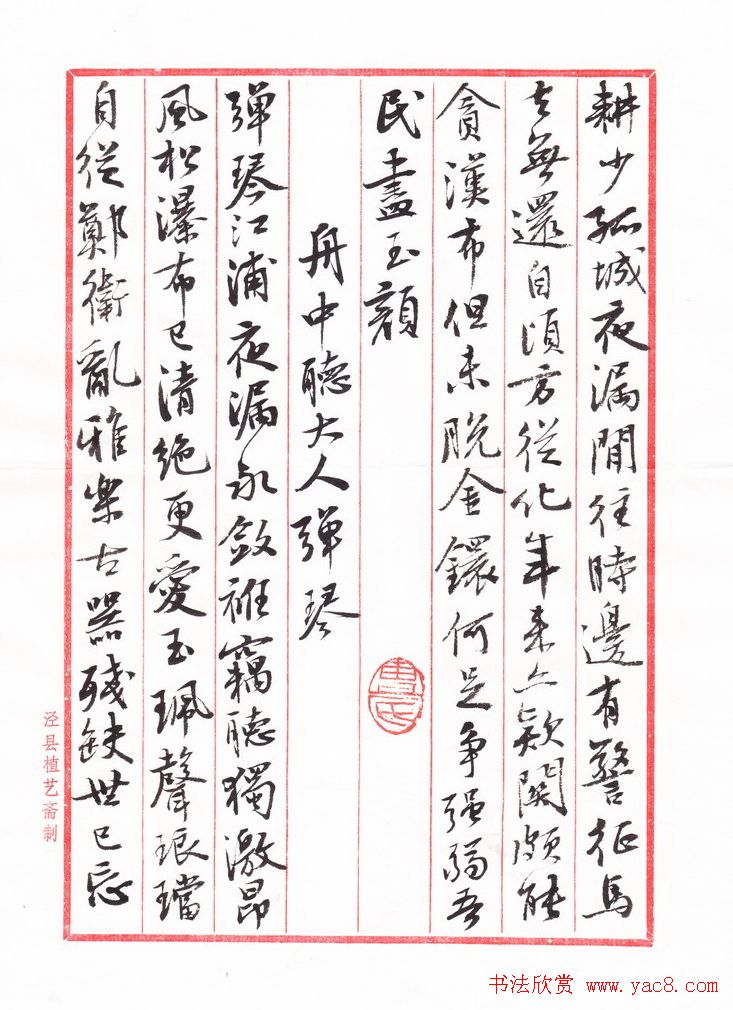 耕少孤城夜漏閒往時邊有警征馬
去無還自頃方從化年來亦欵關頗能
貪漢布但未脫金鐶何足争强弱吾
民盡玉顏
舟中聽大人彈琴
彈琴江浦夜漏永斂袵竊聽獨激昂
風松瀑布已清絶更愛玉珮聲琅璫
自從鄭衛亂雅樂古器殘缺世已忘
泾县植艺斋制
书法欣赏 www.yac8.com